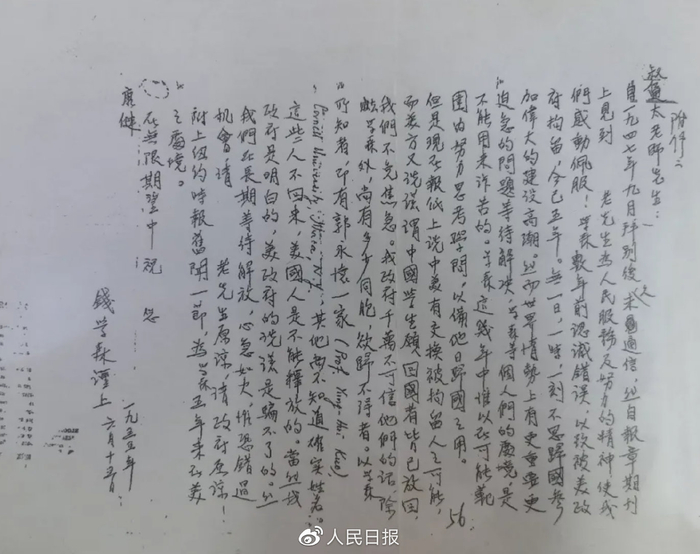 附件二
叔通太老师先生：
自一九四七年九月拜别后未通信，然自报章期刊
上见到　老先生为人民服务及努力的精神使我
们感动佩服！学森数年前认识错误，以致被美政
府拘留，今已五年。无一日，一时一刻不思归國参
加伟大的建设高潮。然而世界情势上有更重要更
迫急的问题等待解决，学森等個人們的处境，是
不能用来诉苦的。学森这幾年中惟以在可能範
围内努力思考学问，以備他日歸國之用。
56
但是現在报纸上说中美有交换被拘留人之可能，
而美方又说谎谓中國学生願回國者皆已放回，
我们不免焦急。我政府千万不可信他们的话，除
学森外，尚有多少同胞，欲歸不得者。以学森
所知者，即有郭永怀一家（Prof. Yung-Huai Kuo,
Cornell University, Ithaca, N.Y.）其他尚不知道确实姓名。
这些人不回来，美國人是不能释放的。当然我
政府是明白的，美政府的说谎是骗不了的。然
我們在長期等待解放，心急如火，惟恐错过
机会，请　老先生原谅，请政府原谅！
附上纽约時報舊闻一節，为学森五年来在美
之处境。
在无限期望中祝　您
康健
钱学森谨上　一九五五年
六月十五日
人民日报